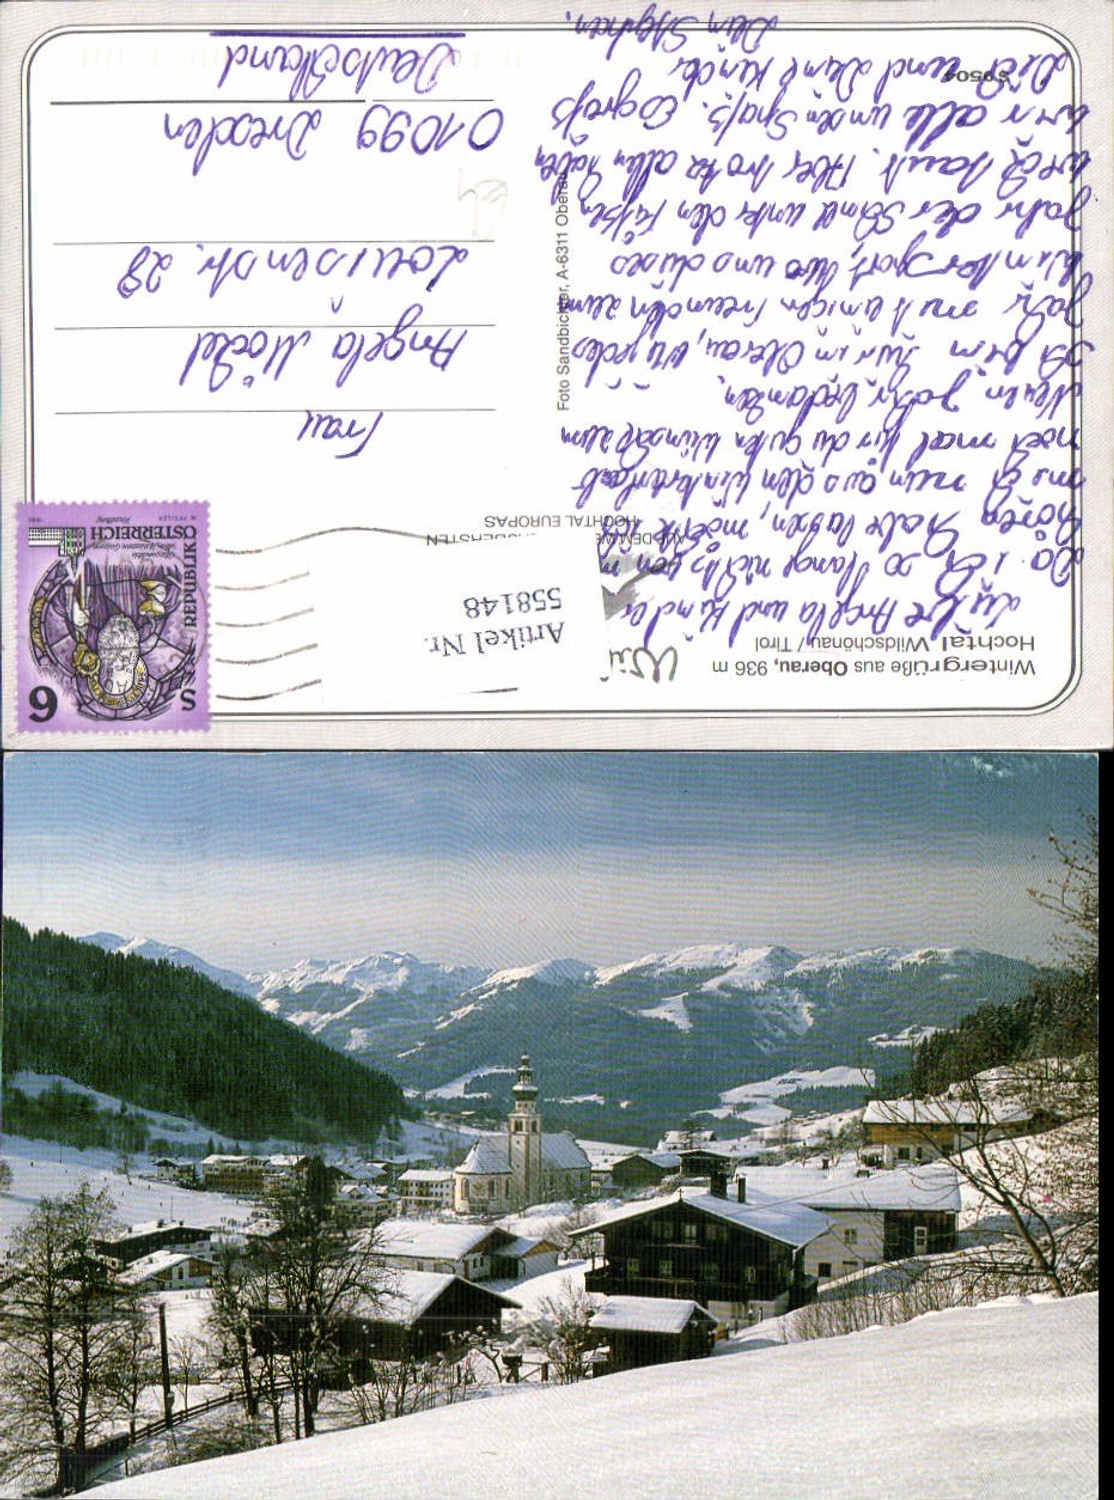 Wintergrüße aus Oberau, 936 m
Hochtal Wildschönau / Tirol
Liebe Angela und Kinder
Da ich so lange nichts von mir
hören habe lassen, möchte ich
mich nun aus dem Winterurlaub
noch mal für die guten Wünsche zum
Neuen Jahr bedanken.
Ich bin hier in Oberau, wie jedes
Jahr mit einigen Freunden zum
Wintersport, wo uns dieses
Jahr der Schnee unter den Füßen
weg taut. Aber trotz allem haben
wir alle unseren Spaß. Es grüßt
Dich und Deine Kinder
Dein Stephan.
S 9504
Foto Sandbichler, A-6311 Oberau
AUF DEM
HOCHTAL EUROPAS
Artikel Nr.
558148
S 6
REPUBLIK
ÖSTERREICH
Frau
Angela Möckel
Louisenstr. 28
01099 Dresden
Deutschland